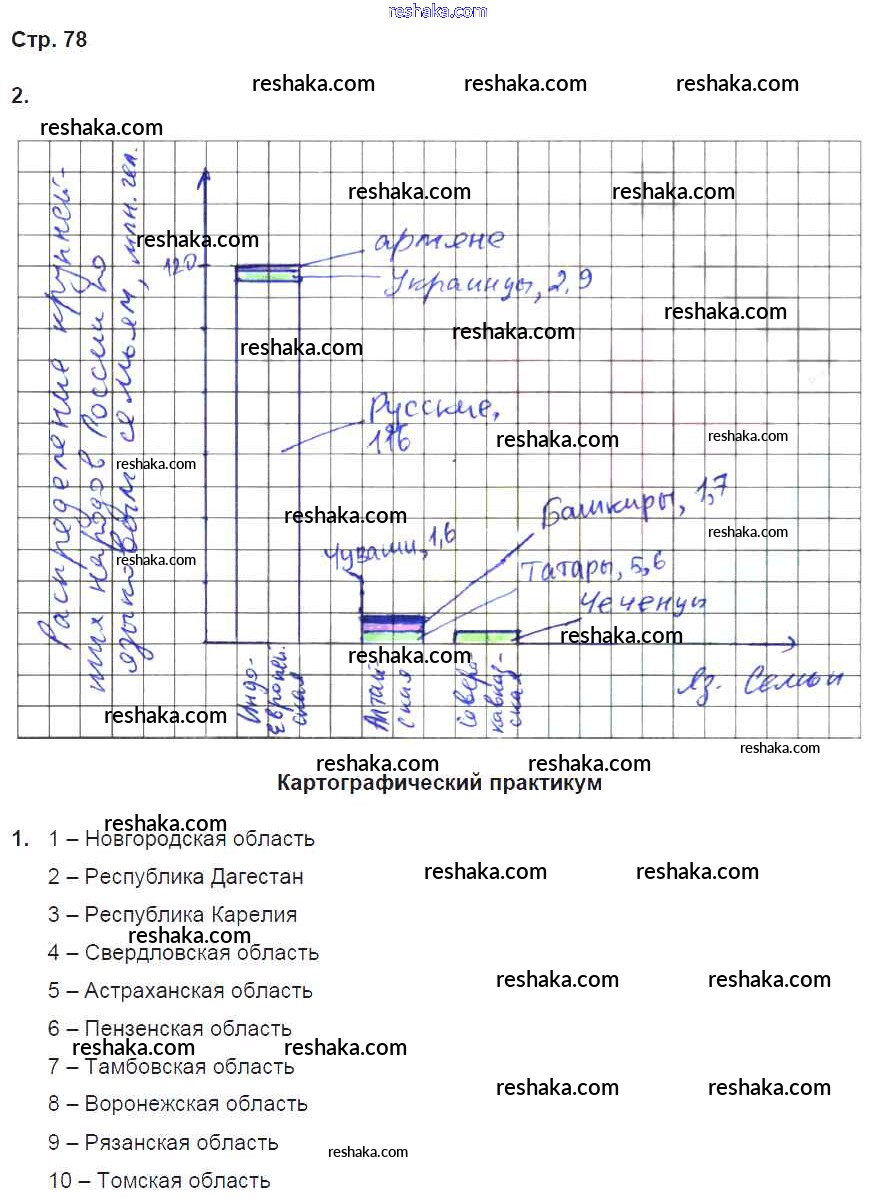 reshaka.com
Стр. 78
reshaka.com reshaka.com reshaka.com
2.
reshaka.com
Распределение крупней-
ших народов России по
языковым семьям, млн. чел.
reshaka.com reshaka.com
reshaka.com
армяне
120
Украинцы, 2,9
reshaka.com
reshaka.com
reshaka.com
Русские,
116
reshaka.com reshaka.com
reshaka.com
Башкиры, 1,7
reshaka.com
Чуваши, 1,6
reshaka.com
reshaka.com
Татары, 5,6
Чеченцы
reshaka.com
reshaka.com
Индо-
европей.
ская
Алтай
ская
Северо
кавказ-
ская
Яз. Семьи
reshaka.com
reshaka.com
reshaka.com reshaka.com
Картографический практикум
reshaka.com
1. 1 – Новгородская область
2 – Республика Дагестан
reshaka.com reshaka.com
3 – Республика Карелия
reshaka.com
4 – Свердловская область
reshaka.com reshaka.com
5 – Астраханская область
6 – Пензенская область
reshaka.com reshaka.com
7 – Тамбовская область
reshaka.com reshaka.com
8 – Воронежская область
9 – Рязанская область
reshaka.com
10 – Томская область